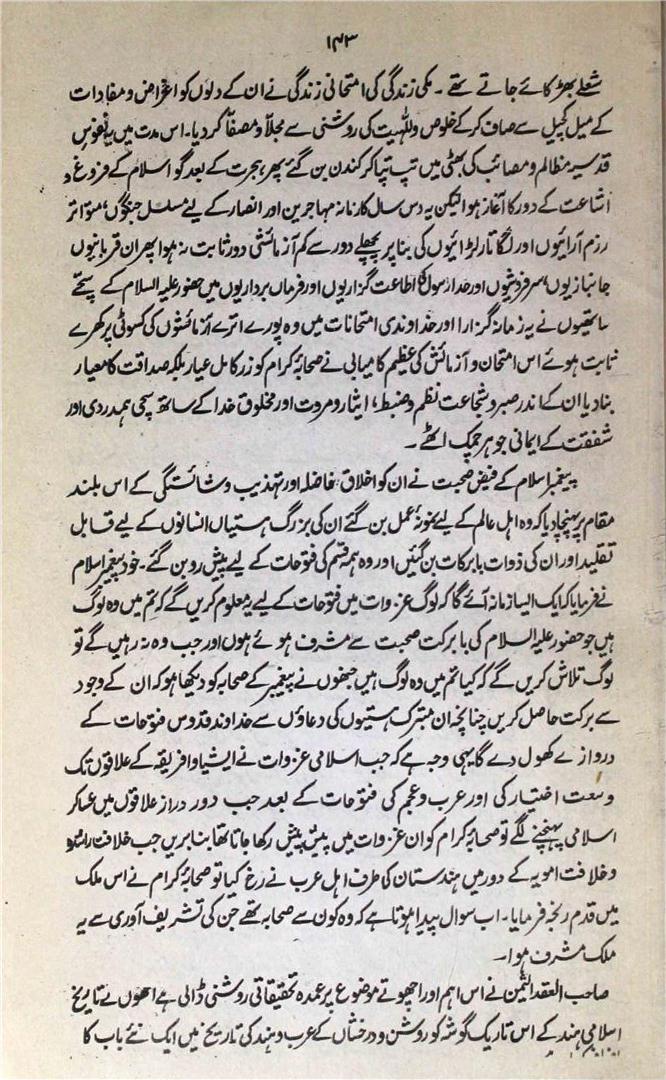 ۱۴۳
شعلے بھڑکائے جاتے تھے ۔ مکی زندگی کی امتحانی زندگی نے ان کے دلوں کو اغراض و مفادات
کے میل کچیل سے صاف کر کے خلوص و للٰہیت کی روشنی سے مجلاّ و مصفاّ کر دیا۔ اس مدت میں یہ نفوس
قدسیہ مظالم و مصائب کی بھٹی میں تپ تپا کر کندن بن گئے پھر ہجرت کے بعد گو اسلام کے فروغ و
اشاعت کے دور کا آغاز ہوا لیکن یہ دس سال کا زمانہ مہاجرین اور انصار کے لیے مسلسل جنگوں، متواتر
رزم آرائیوں اور لگاتار لڑائیوں کی بنا پر پچھلے دور سے کم آزمائشی دور ثابت نہ ہوا پھر ان قربانیوں
جانبازیوں، سرفروشیوں اور خدا و رسول کی اطاعت گزاریوں اور فرماں برداریوں میں حضور علیہ السلام کے سچے
ساتھیوں نے یہ زمانہ گزارا اور خداوندی امتحانات میں وہ پورے اترے آزمائشوں کی کسوٹی پر کھرے
ثابت ہوئے اس امتحان و آزمائش کی عظیم کامیابی نے صحابۂ کرام کو زر کامل عیار بلکہ صداقت کا معیار
بنا دیا ان کے اندر صبر و شجاعت نظم و ضبط، ایثار و مروت اور مخلوق خدا کے ساتھ سچی ہمدردی اور
شفقت کے ایمانی جوہر چمک اٹھے ۔
پیغمبر اسلام کے فیض صحبت نے ان کو اخلاق فاضلہ اور تہذیب و شائستگی کے اس بلند
مقام پر پہنچا دیا کہ وہ اہل عالم کے لیے نمونۂ عمل بن گئے ان کی بزرگ ہستیاں انسانوں کے لیے قابل
تقلید اور ان کی ذوات بابرکات بن گئیں اور وہ ہمہ قسم کی فتوحات کے لیے پیش رو بن گئے ۔ خود پیغمبر اسلام
نے فرمایا کہ ایک ایسا زمانہ آئے گا کہ لوگ غزوات میں فتوحات کے لیے یہ معلوم کریں گے کہ تم میں وہ لوگ
ہیں جو حضور علیہ السلام کی بابرکت صحبت سے مشرف ہوئے ہوں اور جب وہ نہ رہیں گے تو
لوگ تلاش کریں گے کہ کیا تم میں وہ لوگ ہیں جنھوں نے پیغمبر کے صحابہ کو دیکھا ہو کہ ان کے وجود
سے برکت حاصل کریں چنانچہ ان متبرک ہستیوں کی دعاؤں سے خداوند قدوس فتوحات کے
دروازے کھول دے گا یہی وجہ ہے کہ جب اسلامی غزوات نے ایشیا و افریقہ کے علاقوں تک
وسعت اختیار کی اور عرب و عجم کی فتوحات کے بعد جب دور دراز علاقوں میں عساکر
اسلامی پہنچنے لگے تو صحابۂ کرام کو ان غزوات میں پیش پیش رکھا جاتا تھا بنا بریں جب خلافت راشدہ
و خلافت امویہ کے دور میں ہندستان کی طرف اہل عرب نے رخ کیا تو صحابۂ کرام نے اس ملک
میں قدم رنجہ فرمایا ۔ اب سوال پیدا ہوتا ہے کہ وہ کون سے صحابہ تھے جن کی تشریف آوری سے یہ
ملک مشرف ہوا ۔
صاحب العقد الثمین نے اس اہم اور اچھوتے موضوع پر عمدہ تحقیقاتی روشنی ڈالی ہے انھوں نے تاریخ
اسلامی ہند کے اس تاریک گوشہ کو روشن و درخشاں کر کے عرب و ہند کی تاریخ میں ایک نئے باب کا